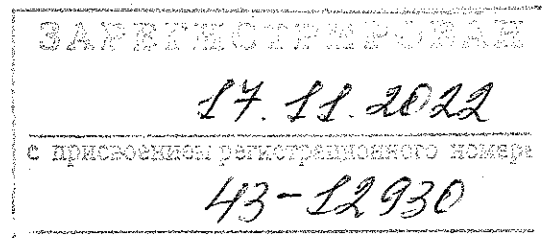 ЗАРЕГИСТРИРОВАН
17.11.2022
с присвоением регистрационного номера
43-12930